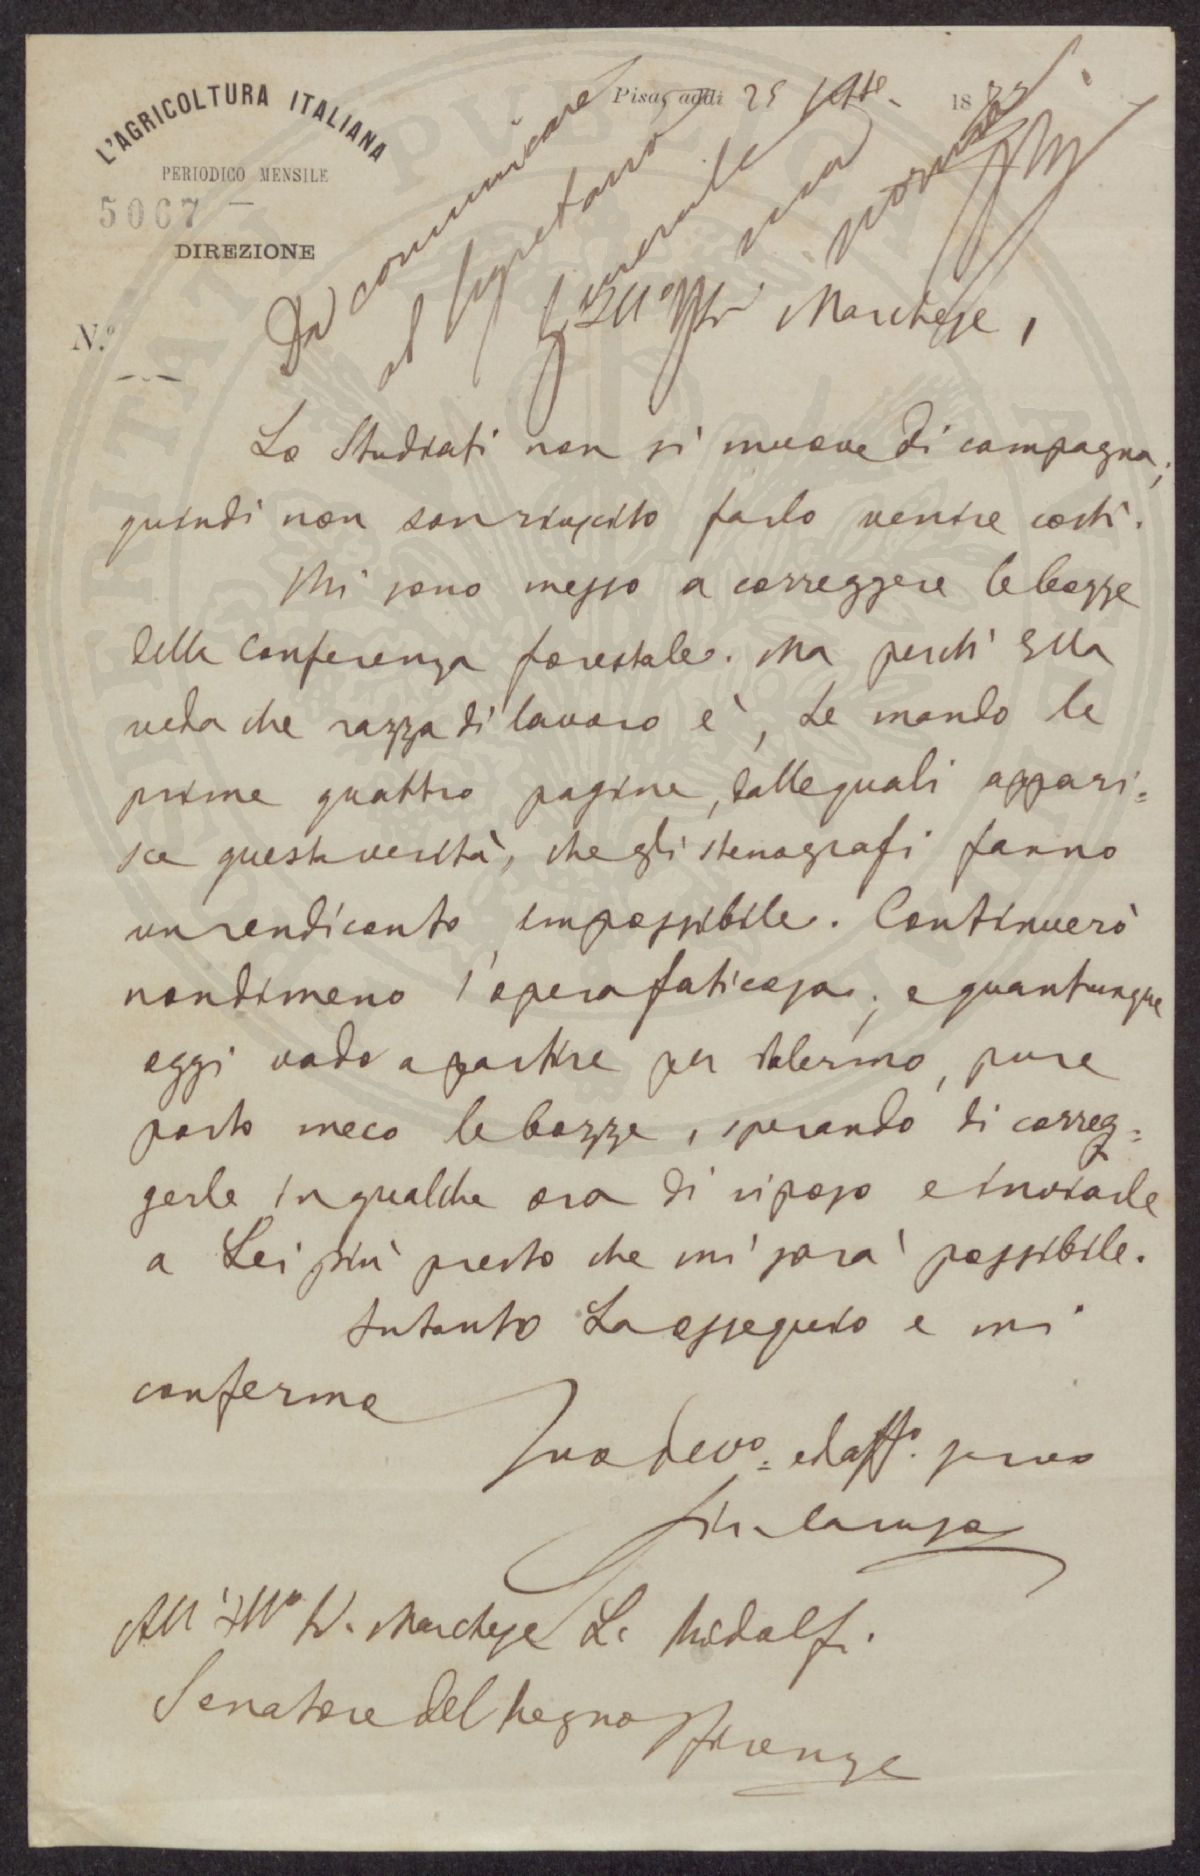 L'AGRICOLTURA ITALIANA
PERIODICO MENSILE
5067
DIREZIONE
N.º
Pisa, addì 25 18
Da comunicare
al Segretario
Generale
Ill.º Sigr Marchese,
Lo Studiati non si muove di campagna;
quindi non son riuscito farlo venire costì.
Mi sono messo a correggere le bozze
della Conferenza forestale. Ma perchè Ella
veda che razza di lavoro è, Le mando le
prime quattro pagine, dalle quali appari=
sce questa verità, che gli stenografi fanno
un rendiconto impossibile. Continuerò
nondimeno l'opera faticosa; e quantunque
oggi vado a partire per Palermo, pure
porto meco le bozze, sperando di correg=
gerle in qualche ora di riposo e inviarle
a Lei più presto che mi sarà possibile.
Intanto La ossequio e mi
confermo
Suo devo. ed affo. servo
Gir. Caruso
All'Illo Sr. Marchese L. Ridolfi.
Senatore del Regno Firenze